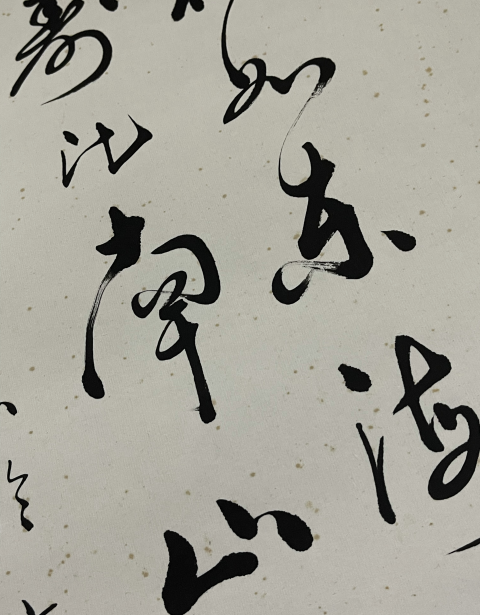 如东海
寿比南山